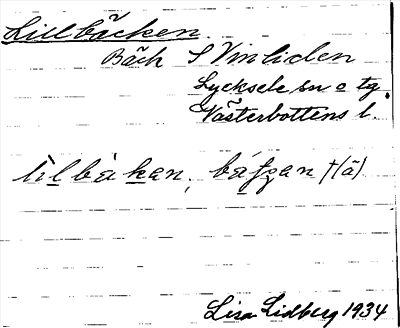 Lillbäcken.
Bäck S Vinliden
Lycksele sn o tg.
Västerbottens l.
lìlbàkan, báfzan †(ä)
Lisa Lidberg 1934